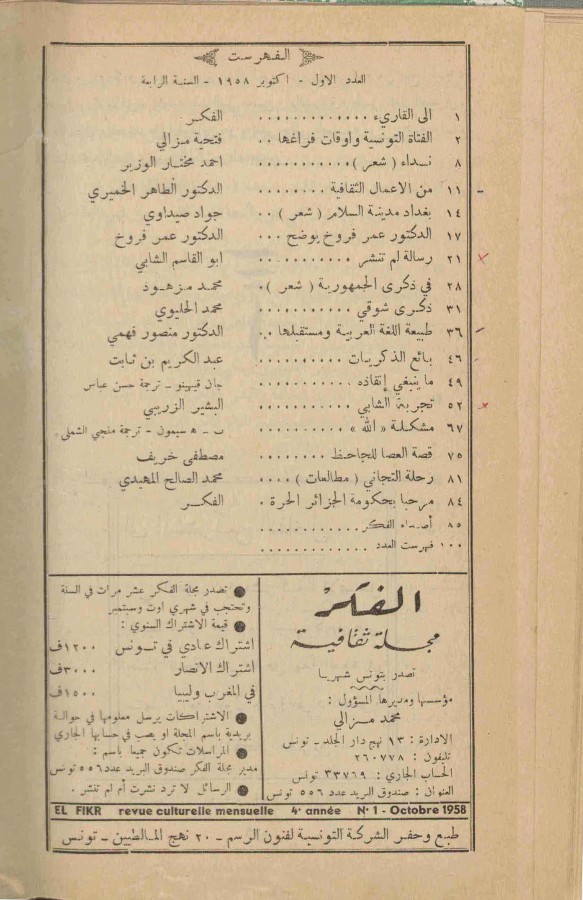 الفهرست
العدد الاول - اكتوبر ١٩٥٨ - السنة الرابعة
١ الى القاريء ............. الفكر
٢ الفتاة التونسية واوقات فراغها .. فتحية مزالي
٨ نداء ( شعر ) ............ احمد مختار الوزير
١١ من الاعمال الثقافية ......... الدكتور الطاهر الخميري
١٤ بغداد مدينة السلام ( شعر ) .. جواد صيداوي
١٧ الدكتور عمر فروخ يوضح ... الدكتور عمر فروخ
٢١ رسالة لم تنشر ........... ابو القاسم الشابي
٢٨ في ذكرى الجمهورية ( شعر ) . محمد مزهود
٣١ ذكرى شوقي ............ محمد الحليوي
٣٦ طبيعة اللغة العربية ومستقبلها .. الدكتور منصور فهمي
٤٦ بائع الذكريات .......... عبد الكريم بن ثابت
٤٩ ما ينبغي إنقاذه ........... جان قيهينو - ترجمة حسن عباس
٥٢ تجربة الشابي ........... البشير الزريبي
٦٧ مشكلة « الله » .......... ب - ه سيمون - ترجمة منجي الشملي
٧٥ قصة العصا للجاحظ ........ مصطفى خريف
٨١ رحلة التجاني ( مطالعات ) .... محمد الصالح المهيدي
٨٤ مرحبا بحكومة الجزائر الحرة . الفكر
٨٥ أصداء الفكر ............
١٠٠ فهرست العدد ............
الفكر
مجلة ثقافية
تصدر بتونس شهريا
مؤسسها ومديرها المسؤول :
محمد مزالي
الادارة : ١٣ نهج دار الجلد - تونس
تليفون : ٢٦٠٧٧٨
الحساب الجاري : ٣٣٧٦٩ تونس
العنوان : صندوق البريد عدد ٥٥٦ تونس
● تصدر مجلة الفكر عشر مرات في السنة
وتحتجب في شهري اوت وسبتمبر
● قيمة الاشتراك السنوي :
اشتراك عادي في تونس ١٢٠٠ف
اشتراك الانصار ٣٠٠٠ف
في المغرب وليبيا ١٥٠٠ف
● الاشتراكات يرسل معلومها في حوالة
بريدية باسم المجلة او يصب في حسابها الجاري
● المراسلات تكون جميعا باسم :
مدير مجلة الفكر صندوق البريد عدد ٥٥٦ تونس
● الرسائل لا ترد نشرت أم لم تنشر .
EL FIKR revue culturelle mensuelle 4e année N° 1 - Octobre 1958
طبع وحفر الشركة التونسية لفنون الرسم - ٢٠ نهج المالطيين - تونس